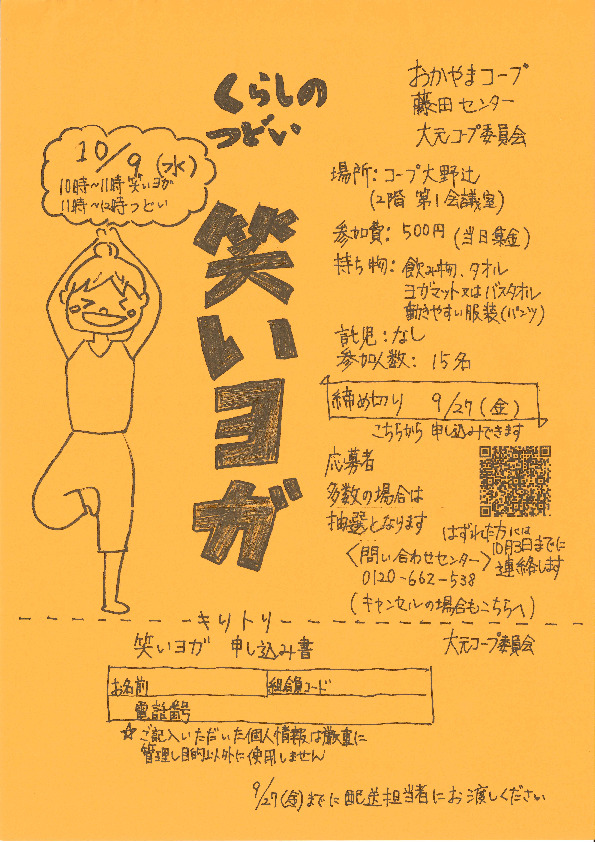 くらしの
つどい
おかやまコープ
藤田センター
大元コープ委員会
10/9(水)
10時～11時 笑いヨガ
11時～12時 つどい
笑いヨガ
場所:コープ大野辻
(2階 第1会議室)
参加費:500円(当日集金)
持ち物:飲み物、タオル
ヨガマット又はバスタオル
動きやすい服装(パンツ)
託児:なし
参加人数:15名
締め切り 9/27(金)
こちらから申し込みできます
応募者
多数の場合は
抽選となります
はずれた方には
10月3日までに
連絡します
<問い合わせセンター>
0120-662-538
(キャンセルの場合もこちらへ)
キリトリ
笑いヨガ 申し込み書
大元コープ委員会
お名前
組合員コード
電話番号
☆ご記入いただいた個人情報は厳重に
管理し目的以外に使用しません
9/27(金)までに配送担当者にお渡しください